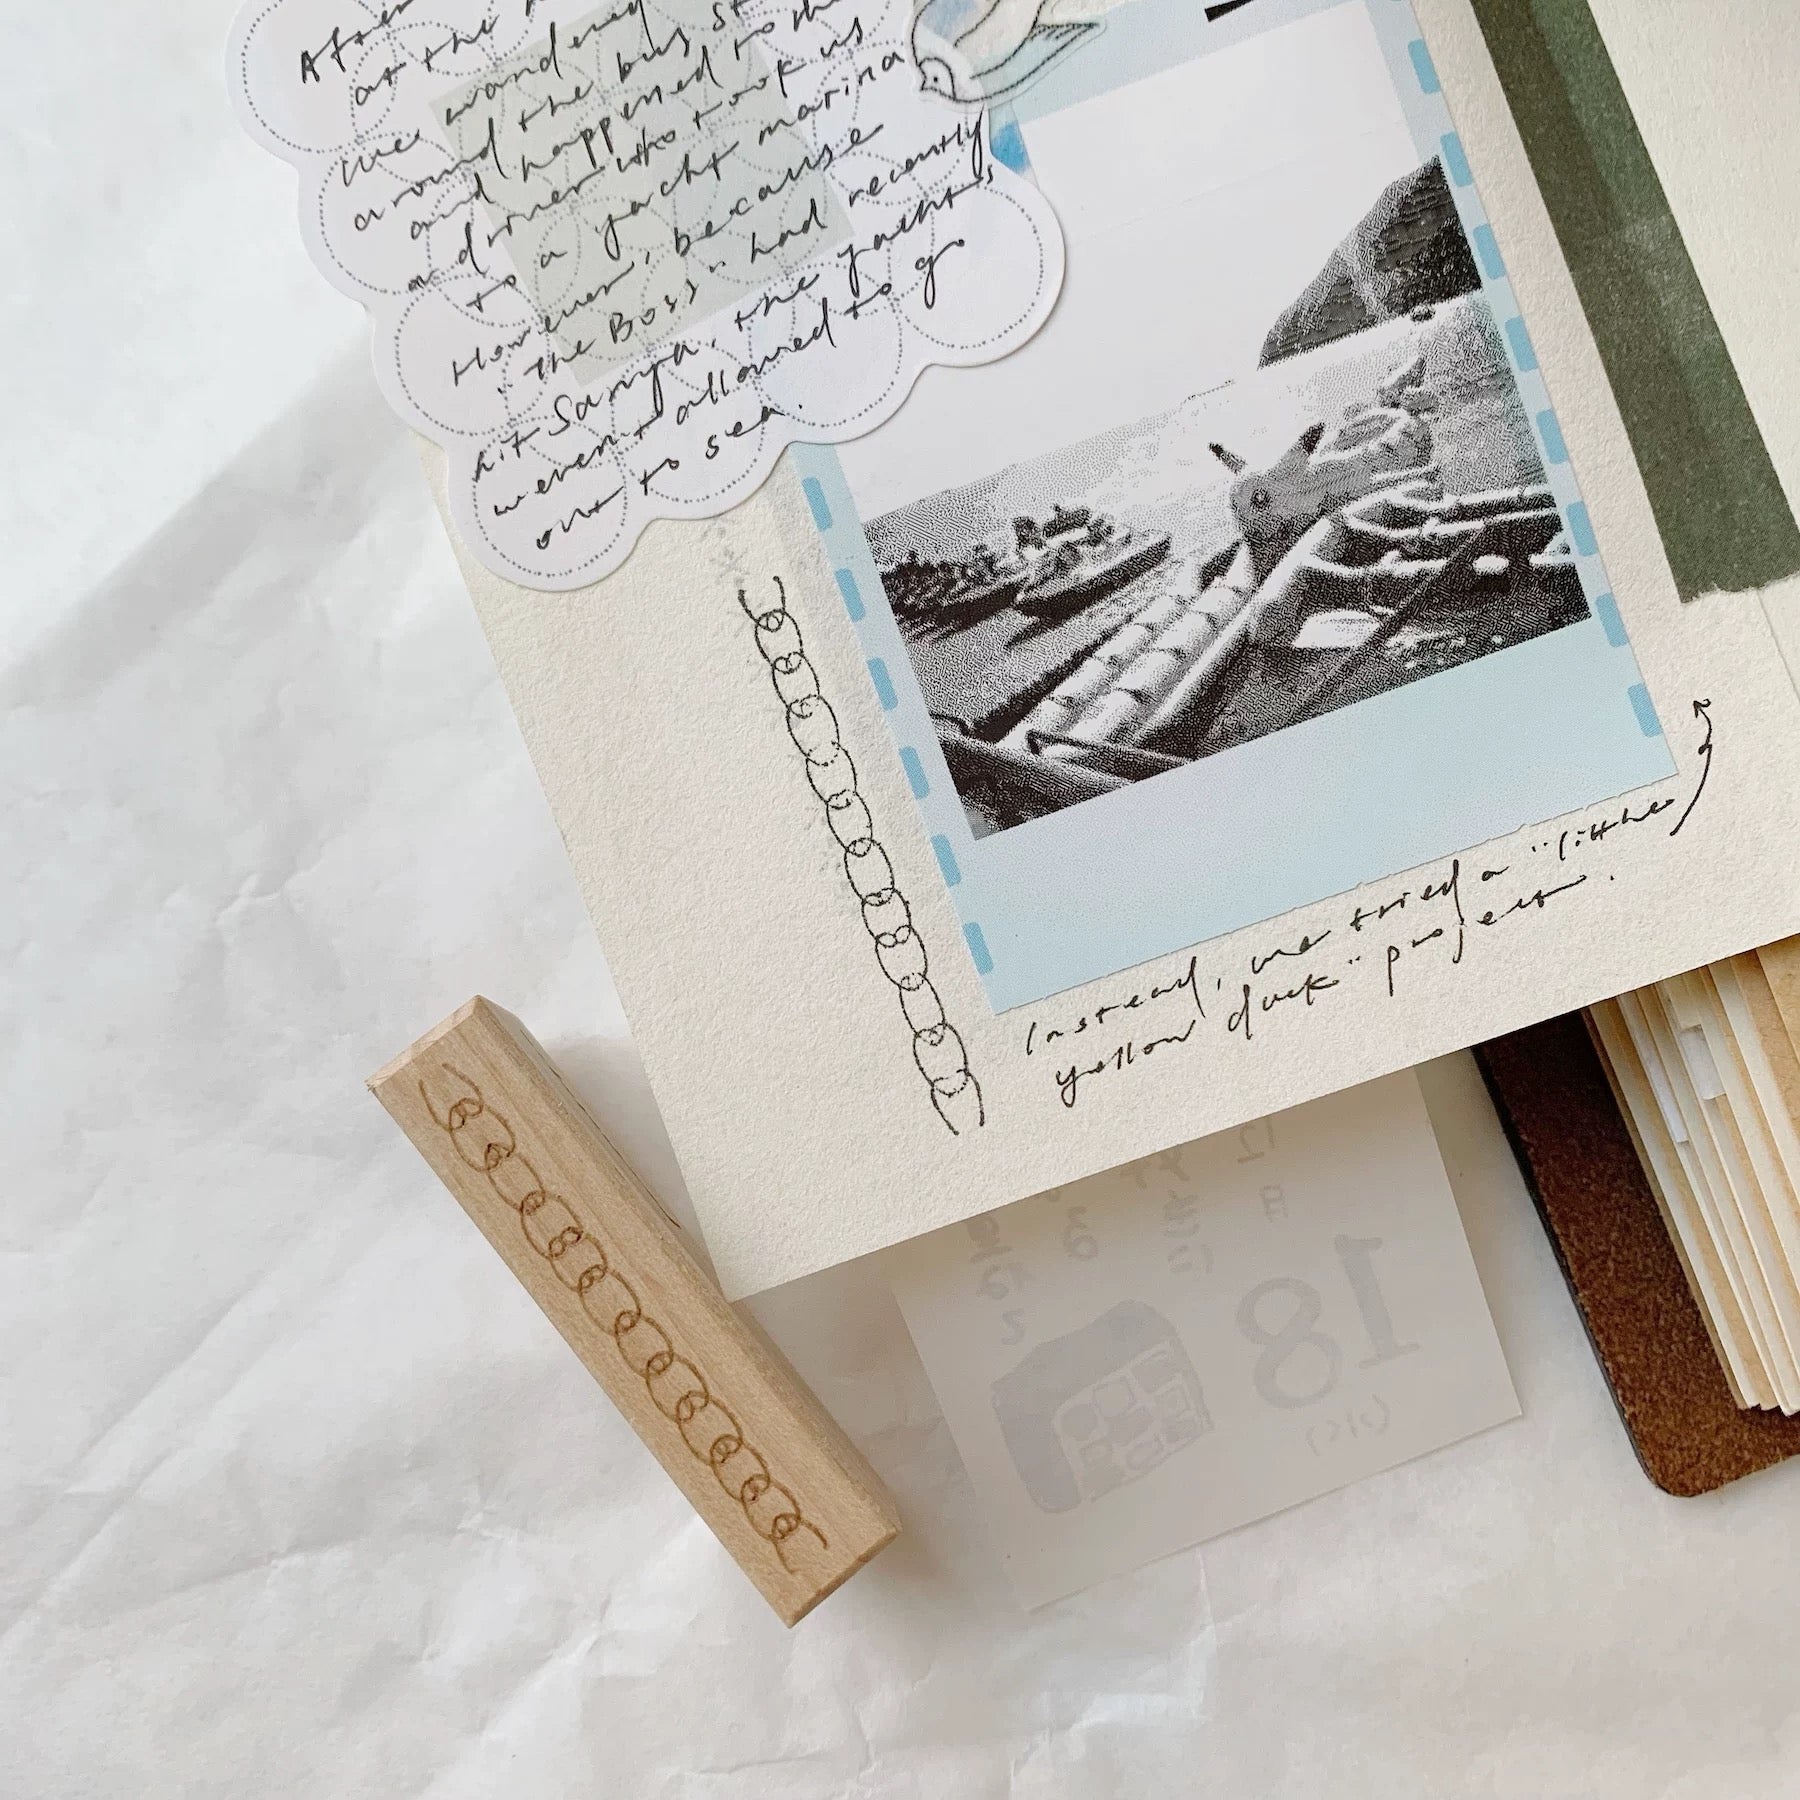 After
at the
we wandered
around the bus st
and happened to the
a driver who took us
to a yacht marina
However, because
"The Boss" had recently
hit Sanya, the yachts
weren't allowed to go
out to sea.
Instead, we tried a "little
yellow duck" project.
18